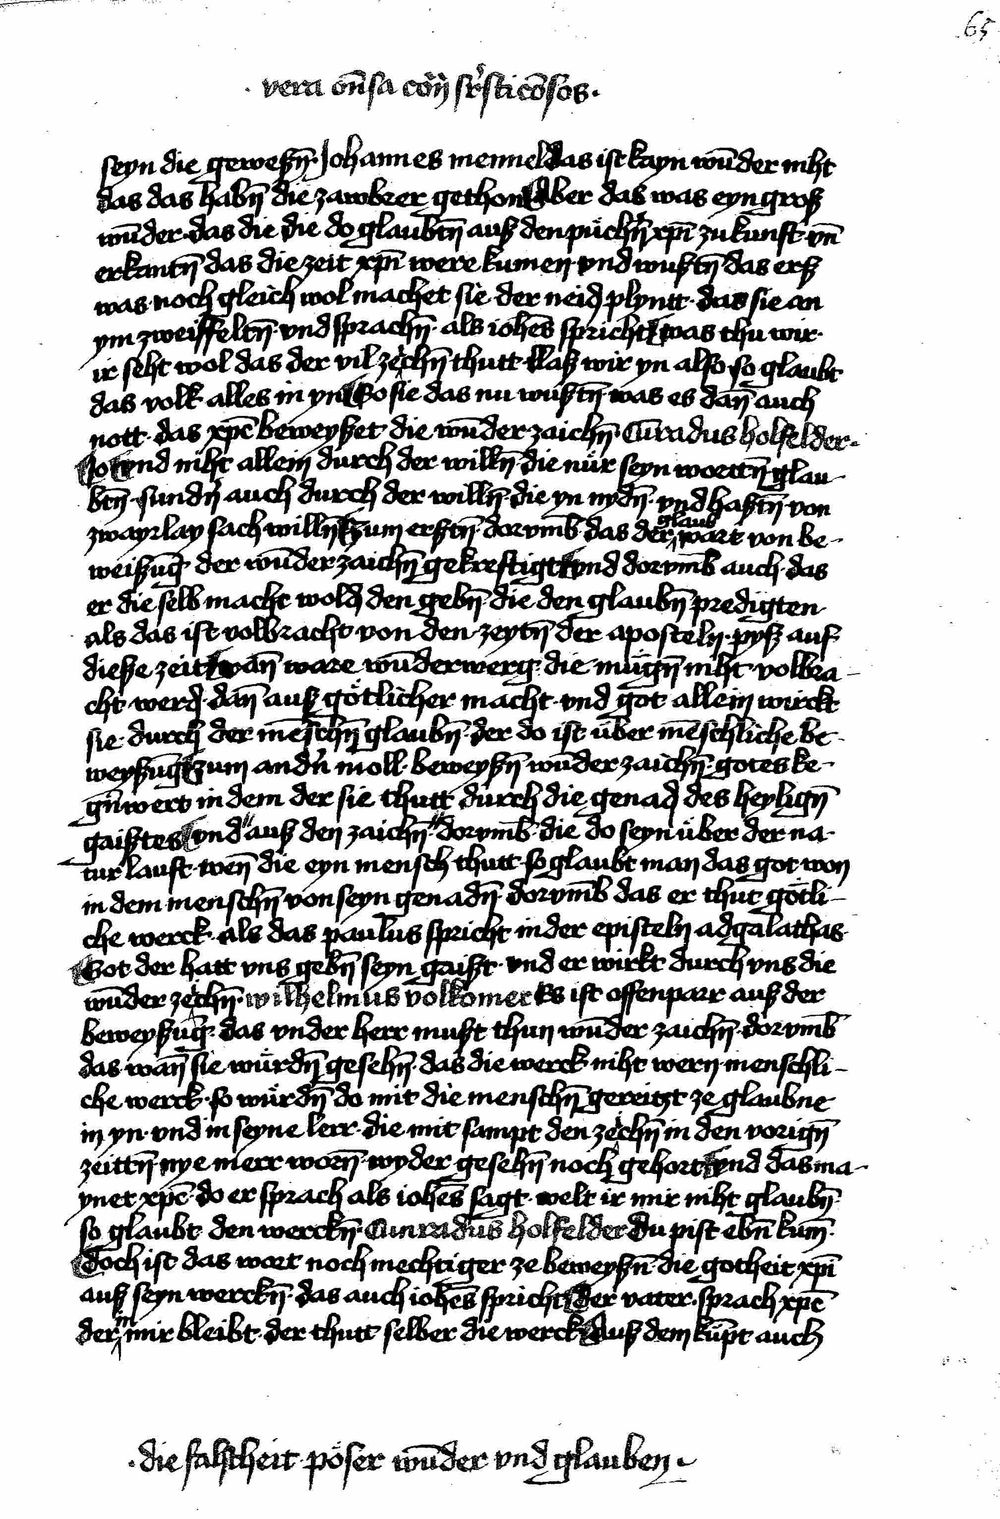 65
· vera on̄sa
seyn die geweßn̄ · Johannes mennel das ist kayn wūder niht
das das habn̄ die zawbrer gethon Aber das was eyn groß
wūder · das die die do glaubtn̄ auß den xp̄i zukunft vn̄
erkantn̄ das die zeit xp̄i were kumen vnd wustn̄ das erß
was · noch gleich wol machet sie · der neid plyntt · das sie an
ym zweiffeltn̄ · vnd sprachn̄ · als ioh̄es spricht was thu wir ·
ir seht wol das der vil zechn̄ thutt · llaß wir yn also · so glaubt
das volk alles in yn So sie das nu wustn̄ was es dan̄ auch
nott · das xp̄c beweyßet die wūder zaichn̄ Cūradus holfelder ·
Jo vnd niht allein durch der willn̄ die nu̇r seyn worttn̄ glau-
btn̄ · sundn̄ auch durch der willn̄ · die yn nydn̄ · vnd hastn̄ von
zwayrlay sach willn̄ zum erstn̄ dorvmb̄ das der glaub wart von be-
weißūg · der wūder zaichn̄ gekrefstigt vnd dorvmb̄ auch · das
er die selb macht wold den gebn̄ · die den glaubn̄ predigten ·
als das ist volbracht von den · zeytn̄ der aposteln · pyß auf
dieße zeit wan̄ ware wūderwerg · die · mügn̄ niht · volbra-
cht · werd · dan̄ auß götlicher macht · vnd got allein wirckt
sie · durch der mēschn̄ glaubn̄ · der do ist über mēschliche be-
weyßūg zum andn̄ moll · beweyßn̄ wūder zaichn̄ · gotes ke-
gn̄wert in dem der sie thutt durch die genad des heylign̄
gaistes vnd auß den zaichn̄ dorvmb̄ · die do seyn über der na-
tur lauft · wen̄ die eyn mensch thutt · so glaubt man das got won
in dem menschn̄ von seyn genadn̄ · dorvmb̄ das er thut götli-
che werck · als das paulus spricht in der episteln ad galathas ·
Got der hatt vns gebn̄ seyn gaist · vnd er wirkt durch vns die
wūder zechn̄ · wilhelmus volkomer Es ist offenparr auß der
beweyßūg · das vnder herr must thun wūder zaichn̄ · dorvmb̄
das wan̄ sie würdn̄ gesehn̄ · das die werck · niht wern menschli-
che werck · so würdn̄ do mit die menschn̄ gereitzt ze glaubne
in yn · vnd in seyne lerr · die mit sampt den zechn̄ in den vorign̄
zeittn̄ · nye merr worn̄ · wyder gesehn̄ noch gehort vnd das ma-
ynet xp̄c · do er sprach als ioh̄es sagt · welt ir mir niht glaubn̄ ·
so glaubt · den werckn̄ · Cunradus holfelder du pist ebn̄ kum̄ ·
doch ist das wort noch mechtiger ze beweyßn̄ · die gotheit xp̄i
auß seyn werckn̄ · das auch ioh̄es spricht der vater · sprach xp̄c
der in mir bleibt · der thutt selber die werck Auß dem kūpt auch
· die falscheit pöser wūder vnd glauben ·